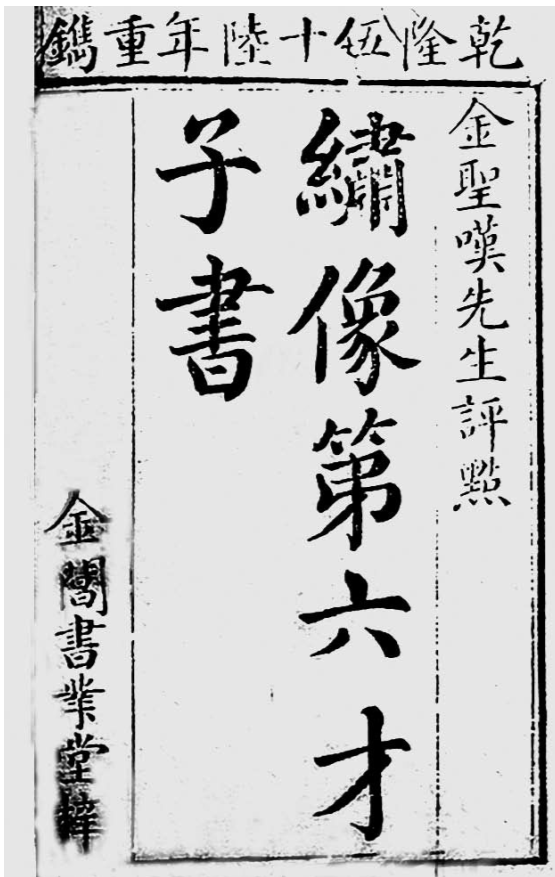 乾隆伍十陸年重鐫
金聖嘆先生評㸃
繡像第六才
子書
金閶書業堂梓